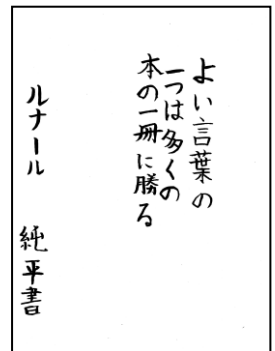 よい言葉の
一つは多くの
本の一冊に勝る
ルナール　純平書